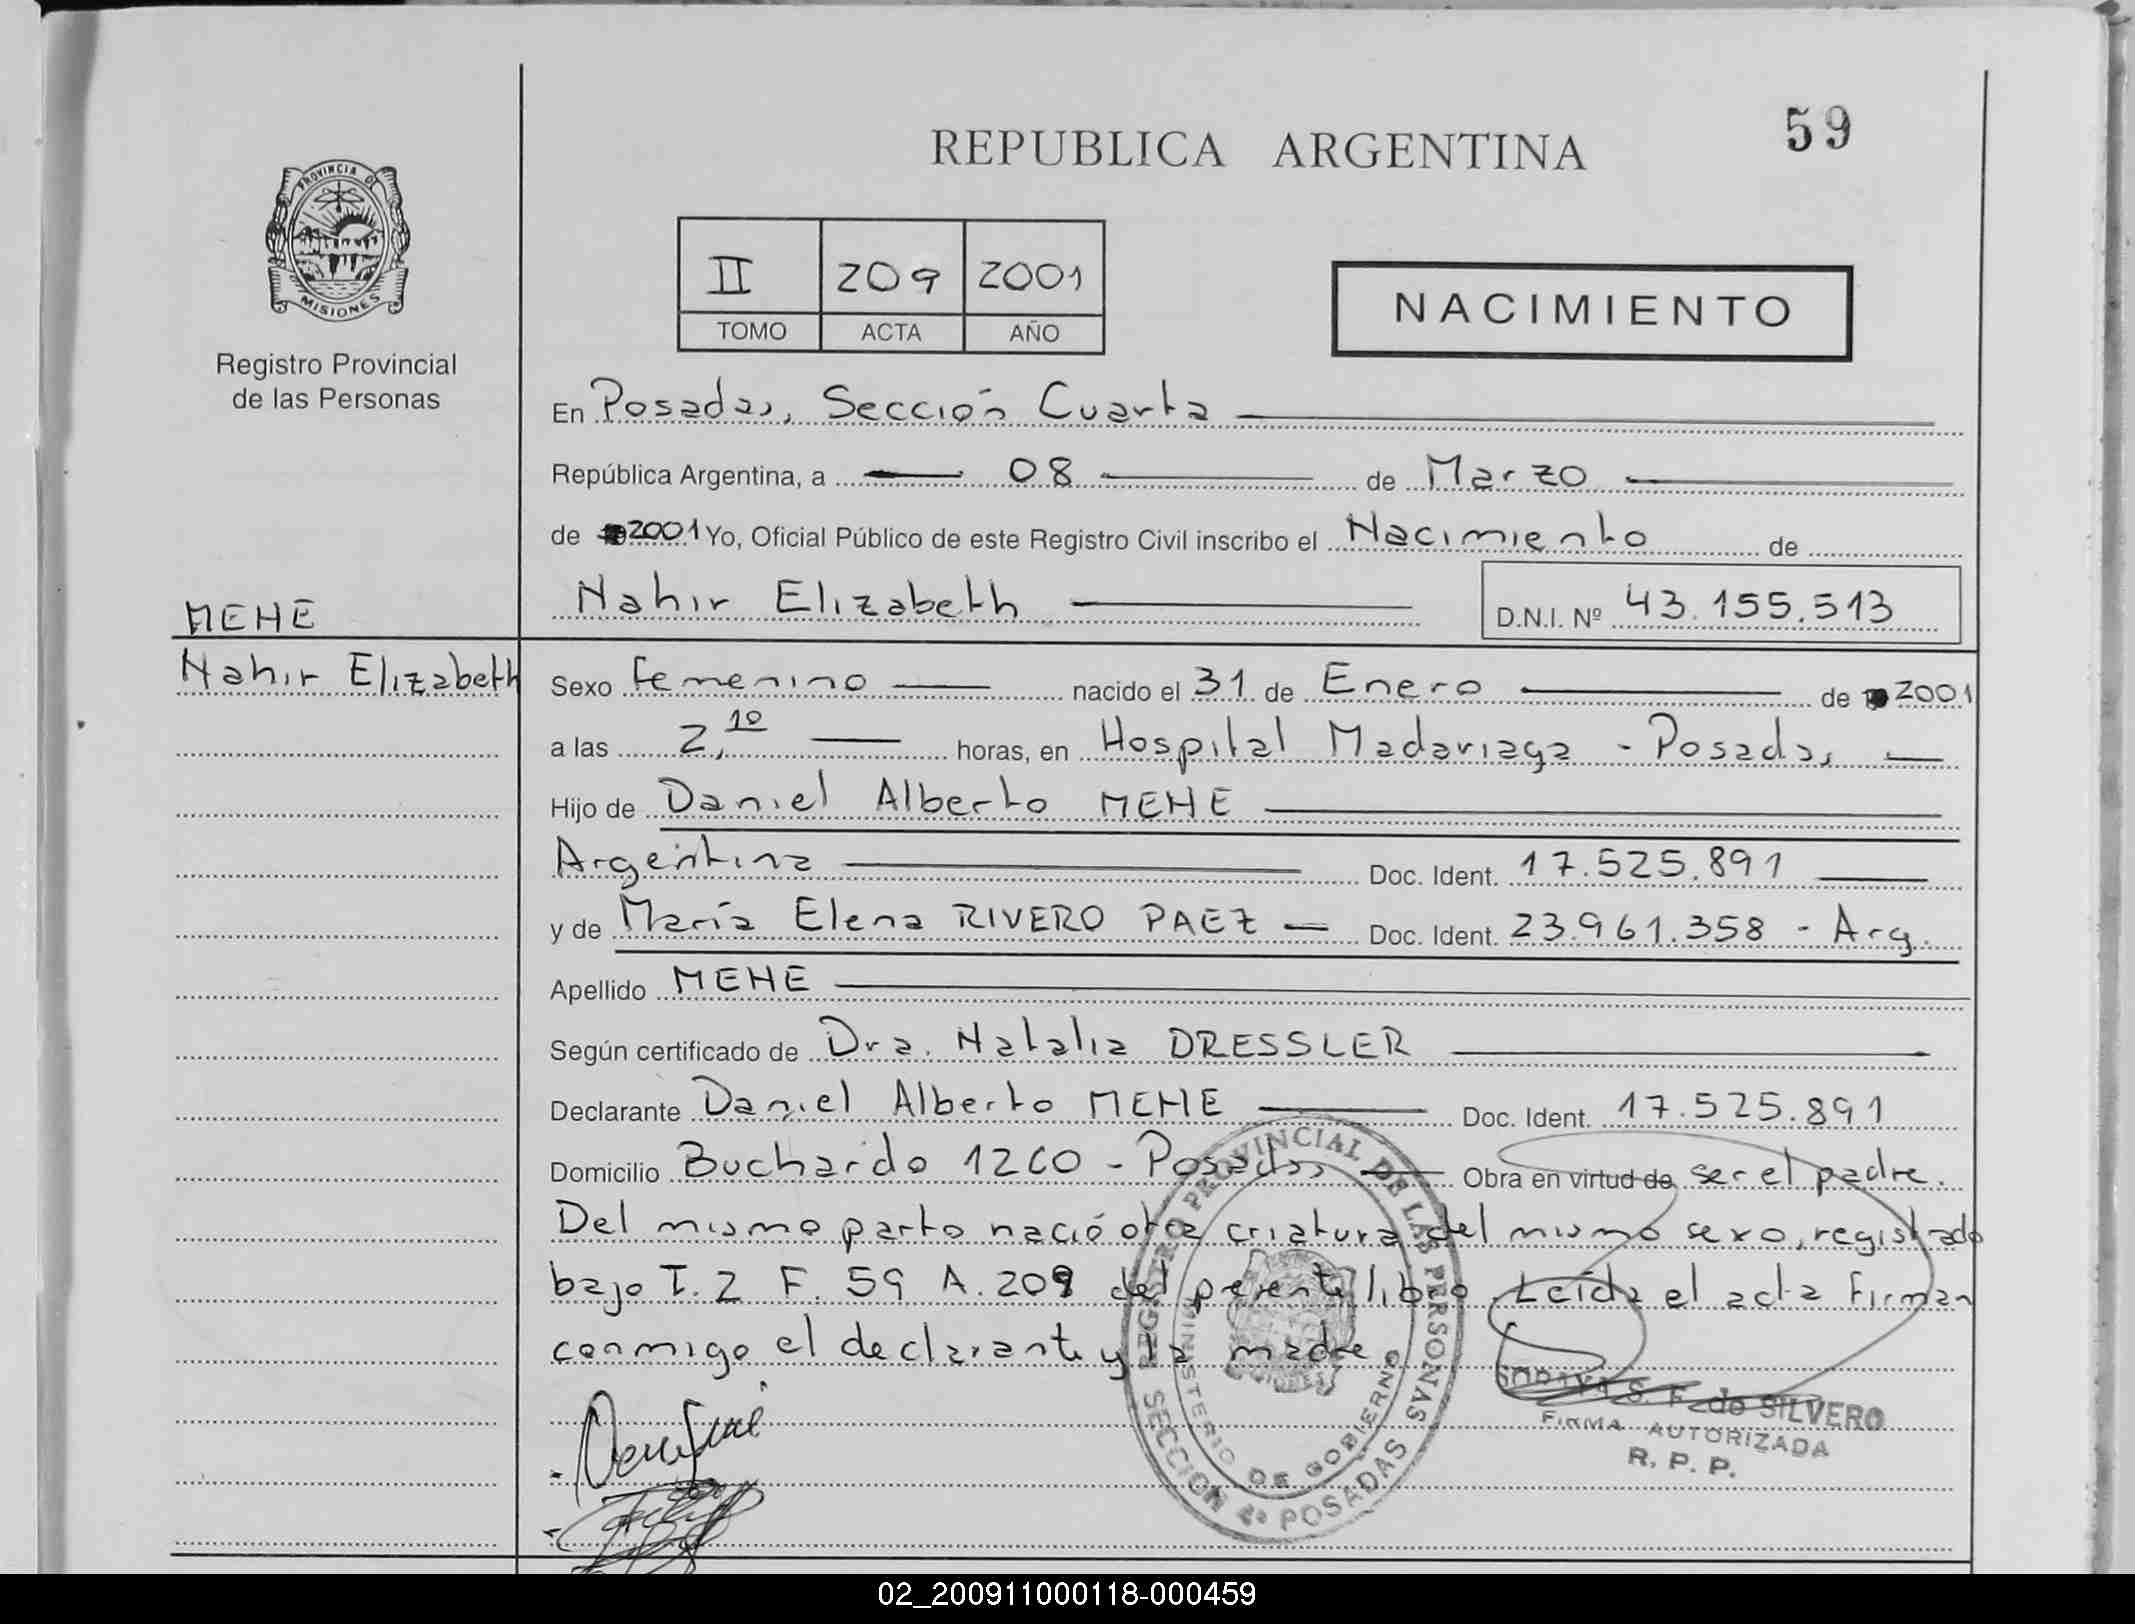 59
REPUBLICA ARGENTINA
PROVINCIA DE
MISIONES
Registro Provincial
de las Personas
II 209 2001
TOMO ACTA AÑO
NACIMIENTO
En Posadas, Sección Cuarta
República Argentina, a 08 de Marzo
de 2001 Yo, Oficial Público de este Registro Civil inscribo el Nacimiento de
Nahir Elizabeth D.N.I. Nº 43.155.513
MEHE
Nahir Elizabeth
Sexo Femenino nacido el 31 de Enero de 2001
a las 2,10 horas, en Hospital Madariaga - Posadas
Hijo de Daniel Alberto MEHE
Argentina Doc. Ident. 17.525.891
y de María Elena RIVERO PAEZ Doc. Ident. 23.961.358 - Arg.
Apellido MEHE
Según certificado de Dra. Natalia DRESSLER
Declarante Daniel Alberto MEHE Doc. Ident. 17.525.891
Domicilio Buchardo 1260 - Posadas Obra en virtud de ser el padre.
Del mismo parto nació otra criatura del mismo sexo, registrado
bajo T. 2 F. 59 A. 209 del presente libro. Leída el acta firman
conmigo el declarante y la madre.
REGISTRO PROVINCIAL DE LAS PERSONAS
MINISTERIO DE GOBIERNO
SECCION 4a POSADAS
S. F. de SILVERO
FIRMA AUTORIZADA
R. P. P.
02_200911000118-000459